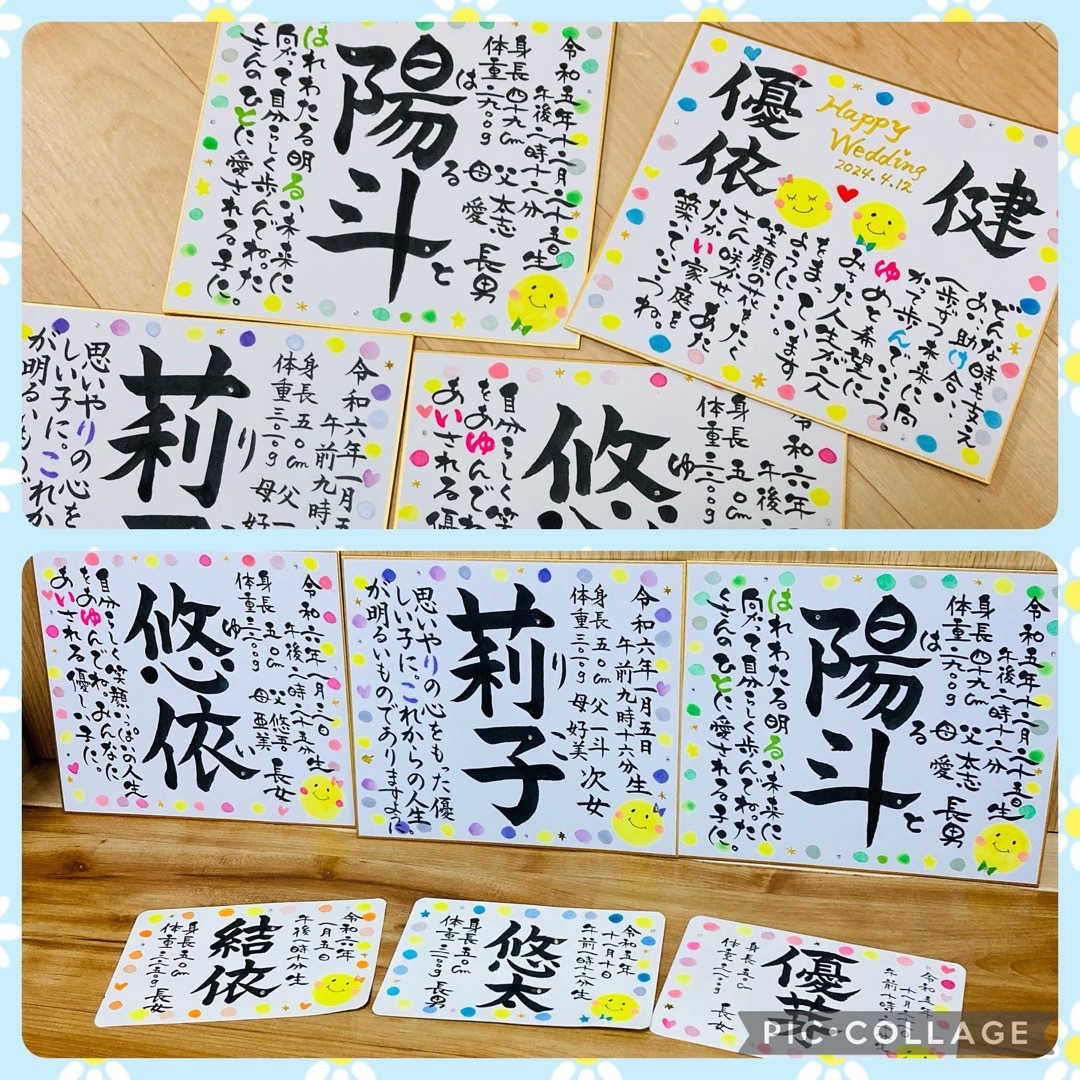 令和五年十二月二十五日生
午後一時十六分
身長四十九cm
父 太志 長男
母 愛
陽斗
はると
はれわたる明るい未来に
向かって自分らしく歩んでね。た
くさんのひとに愛される子に。
優依
健
Happy
Wedding
2024.4.12
どんな時も支え
あい助け合い、
一歩ずつ未来に向
かって歩んでいこう。
ゆめと希望に
みちた人生が二人
をまっています
ように…。
笑顔の花をたく
さん咲かせ、あた
たかい家庭を
築いていこうね。
令和六年一月五
午前九時十
身長五〇cm 父一
体重三〇〇g 母好
莉子
り
思いやりの心を
しい子に。これか
が明るいもので
令和六年
午後
身長五〇cm
悠
ゆ
自分らしく笑
をあゆんでね
あいされる優
午後
身長五〇cm
父 悠吾 長女
母 亜美
悠依
ゆい
自分らしく笑顔いっぱいの人生
をあゆんでね。みんなに
あいされる優しい子に。
令和六年一月五日
午前九時十六分生
身長五〇cm 父一斗 次女
体重三〇〇g 母好美
莉子
りこ
思いやりの心をもった優
しい子に。これからの人生
が明るいものでありますように。
令和五年十二月二十五日生
午後一時十六分
身長四十九cm
父 太志 長男
母 愛
陽斗
はると
はれわたる明るい未来に
向かって自分らしく歩んでね。た
くさんのひとに愛される子に。
令和六年
一月五日
午後一時十分生
身長五〇cm
長女
結依
令和五年
十一月十日
身長五〇cm
長男
悠太
令和五年
身長五〇cm
長女
優
PIC•COLLAGE